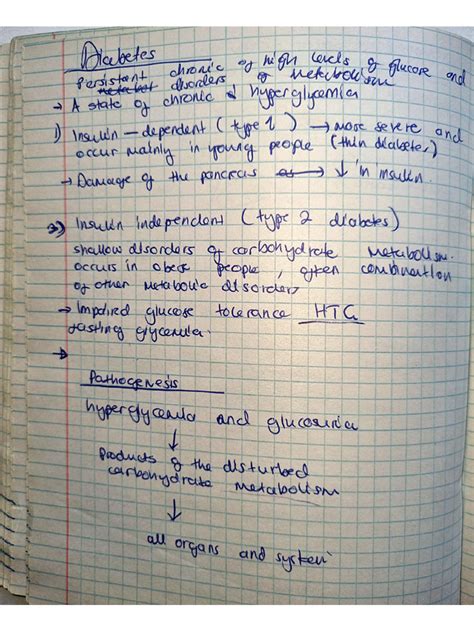 Diabetes
Persistant chronic of high levels of glucose and
disorders of metabolism
→ A state of chronic hyperglycemia
1) Insulin - dependent (type 1) → more severe and
occur mainly in young people (thin diabetes)
→ Damage of the pancreas → ↓ in insulin.
2) Insulin independent (type 2 diabetes)
shallow disorders of carbohydrate metabolism.
occurs in obese people, often combination
of other metabolic disorders
→ Impaired glucose tolerance HTG
fasting glycemia.
→
Pathogenesis
hyperglycemia and glucosuria
↓
Products of the disturbed
carbohydrate metabolism
↓
all organs and system